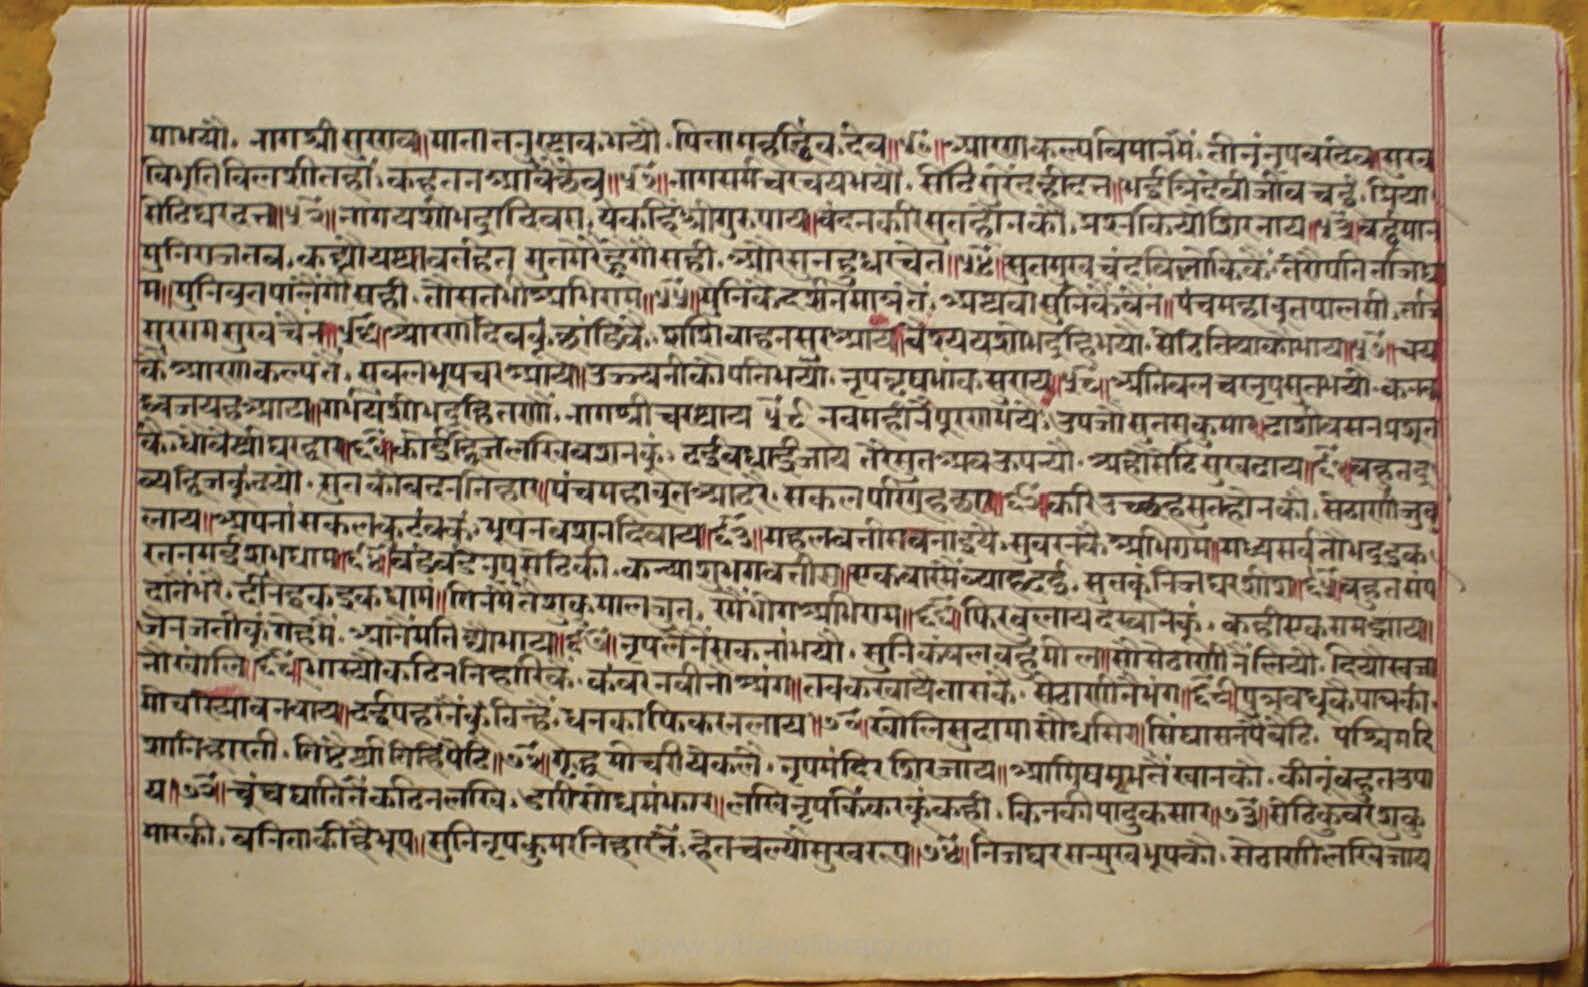 माभयौ. नागश्री सुरराव॥माता तनु भयौ. पिता महर्द्धिव देव॥५०॥आरणकल्पविमानमें. तीनूं नृपवरदेव॥सुख
विभूतिविलशीतहां. कहतन आवै छेव॥५१॥नागसर्म चरचयभयौ. सेठि सुरेंद्रहीदत्त॥भई त्रिदेवी जीव चय. प्रिया
सेठिघरदत्त॥५२॥नागयशोभद्रादिवस. येकहिं श्रीगुरुपाय॥वंदनकरिसुतहौनकौ. प्रश्नकियौशिरनाय॥५३॥वर्द्धमान
मुनिराजतब. कह्यौ सुततेरैंह्वैगौसही. औरसुनहुधरचेत॥५४॥सुतमुखचंदविलोकिकैं. तेरौपतिनजिधा
म॥मुनिवृतपालैगौसही. तौसुतभीअभिराम॥५५॥मुनिकेदर्शनमात्रतें. अथवामुनिकेबैन॥पंचमहावृतपालसी. तजि
सुरगमसुखचैन॥५६॥आरणदिवकूं छांडिकैं. शशिवाहनसुरआय॥वैश्ययशोभद्रहिभयौ. सेठितियाकौभाय॥५७॥चय
कैआरणकल्पतें. सबलभूपचरआय॥उज्जयनीकौपतिभयौ. नृपवृषभांकसुराय॥५८॥अतिबलचरनृपसुतभयौ. कनक
ध्वजयह आय॥गर्भयशोभद्राहितणौं. नागश्रीचर आय ५९ नवमहीनैंपूरणभये. उपजौसुतसुकुमार॥दाशीवसनप्रशूत
के. धोवैश्रीघरद्वार॥६०॥कोईद्विजलखिवशनकूं. दईबधाईजाय तेरैसुतअबऊपन्यौ. अहोसेठिसुखदाय॥६१॥बहुतद्र
व्यद्विजकूंदयौ. सुतकौबदननिहार॥पंचमहावृतआदरे. सकलपरिग्रहछार॥६२॥करिउच्छहसुतहौनकौ. सेठाणीजुबु
लाय॥अपनांसकलकुटंबकूं. भूषनवशनदिवाय॥६३॥महलबत्तीसबनाइयै. सुवरनकैअभिराम॥मध्यसर्वतोभद्रइक.
रतनमईशुभधाम॥६४॥बडेबडेनृपसेठिकी. कन्याशुभगबत्तीस॥एकवारमेंव्याहदई. सुतकूंनिजघरशीश॥६५॥बहुतसंप
दातैंभरे. दीनेंइकइकधाम॥तिनमेंतेंशुकमालजुत. रमैंभोगअभिराम॥६६॥फिरबुलायदरबानकूं. कहीएकसमझाय॥
जैनजतीकूंमहमें. आनैमतिद्यौभाय॥६७॥नृपलैनेंसकनांभयौ. सुनिकंबलबहुमोल॥सोसेठाणीनैंलियौ. दियौ
नौखोलि॥६८॥भास्यौकठिननिहारिकैं. कंवरनवीनौअंग॥तबकरवायैतासकै. सेठाणीनैभंग॥६९॥पुत्रवधूकैपावकी.
मोचडियांबनवाय॥दईपहरनैंकूंतिन्हैं. धनकाफिकरनलाय॥७०॥खोलिसुदामासौधसिर॥सिंघासनपैबैठि. पश्चिमदि
शानिहारती. तिष्टैश्रीतिहिंपैठि॥७१॥गृद्ध येकलै. नृपमंदिरशिरजाय॥आमिषमृभतैंखानकौ. कीनूंबहुतउपा
य॥७२॥चूंचघातितैंकठिनलखि. डारीसौधमंझार॥लखिनृपकिंकरकूंकही. किनकीपादुकसार॥७३॥सेठिकुवरशुकु
मारकी. बनिताकीहैभूप॥सुनिनृपकुमरनिहारनैं. हेतचल्यौसुखरूप॥७४॥निजघरसन्मुखभूपकौ. सेठाणीलखिजाय